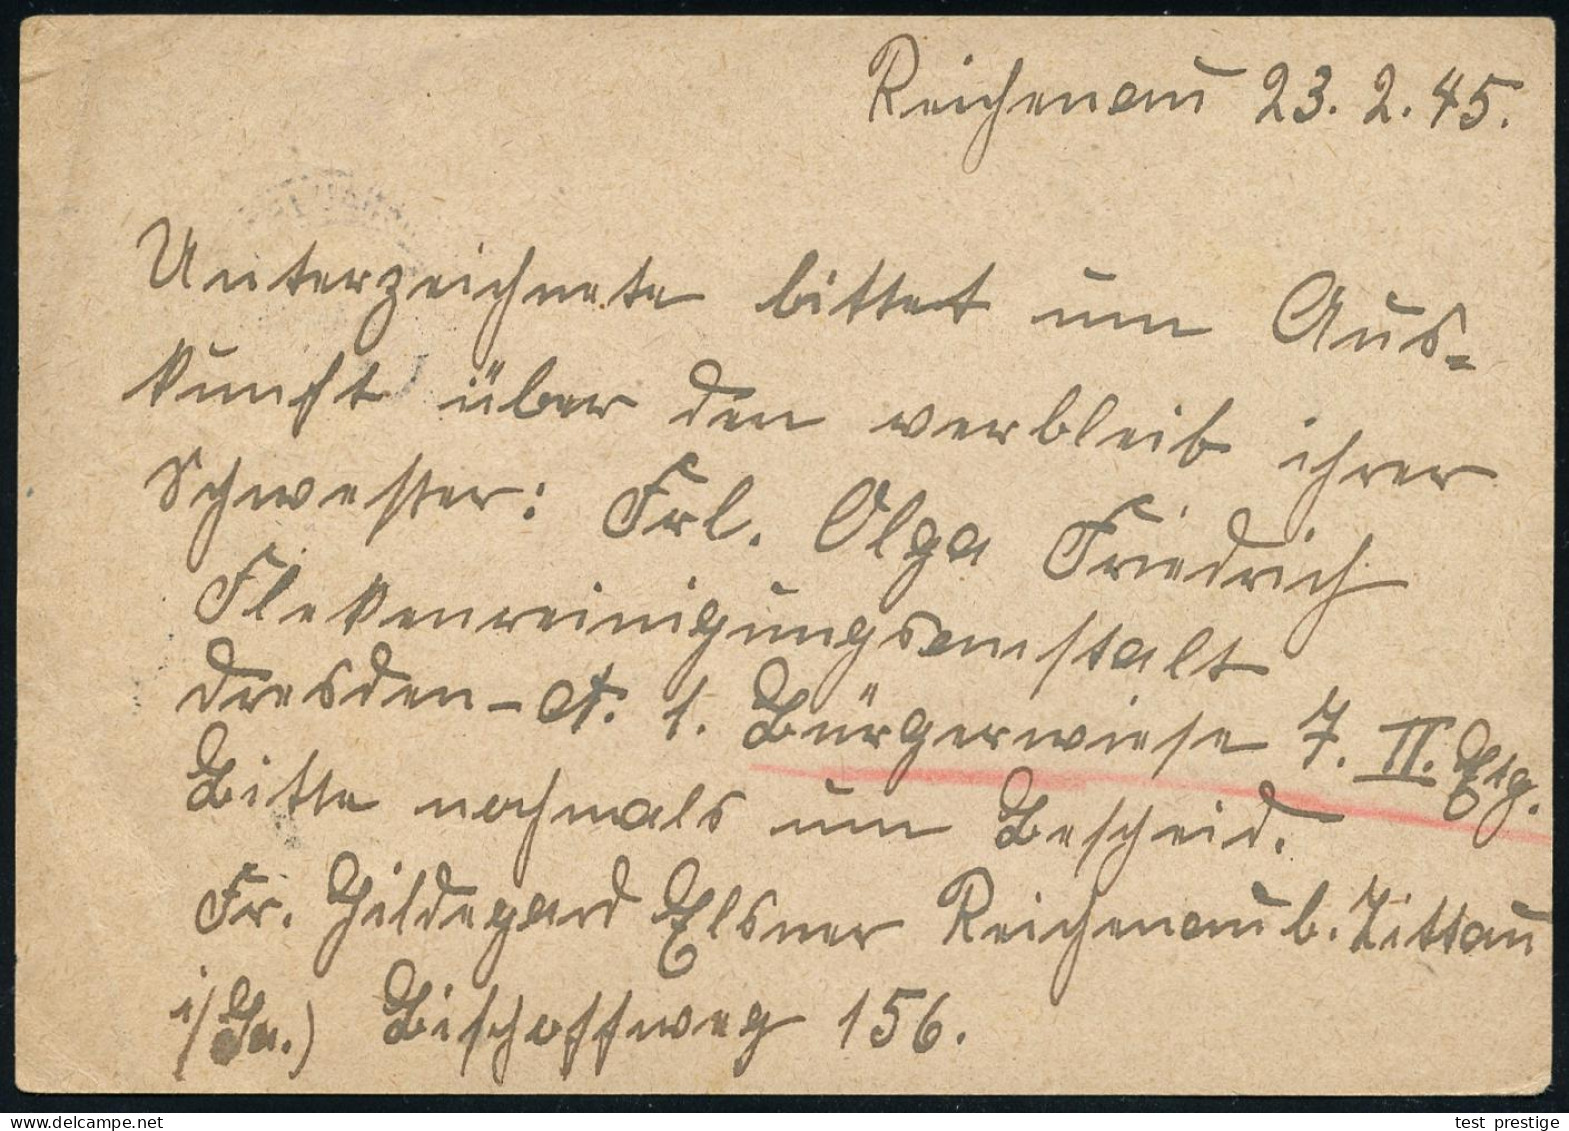 Reichenau 23. 2. 45.
Unterzeichnete bittet um Aus=
kunft über den verbleib ihrer
Schwester: Frl. Olga Friedrich
Flekenreinigungsanstalt
Dresden-A. 1. Bürgerwiese 7. II. Etg.
Bitte nochmals um Bescheid.
Fr. Hildegard Elsner Reichenau b. Zittau
i/Sa.) Bischoffweg 156.
test prestige